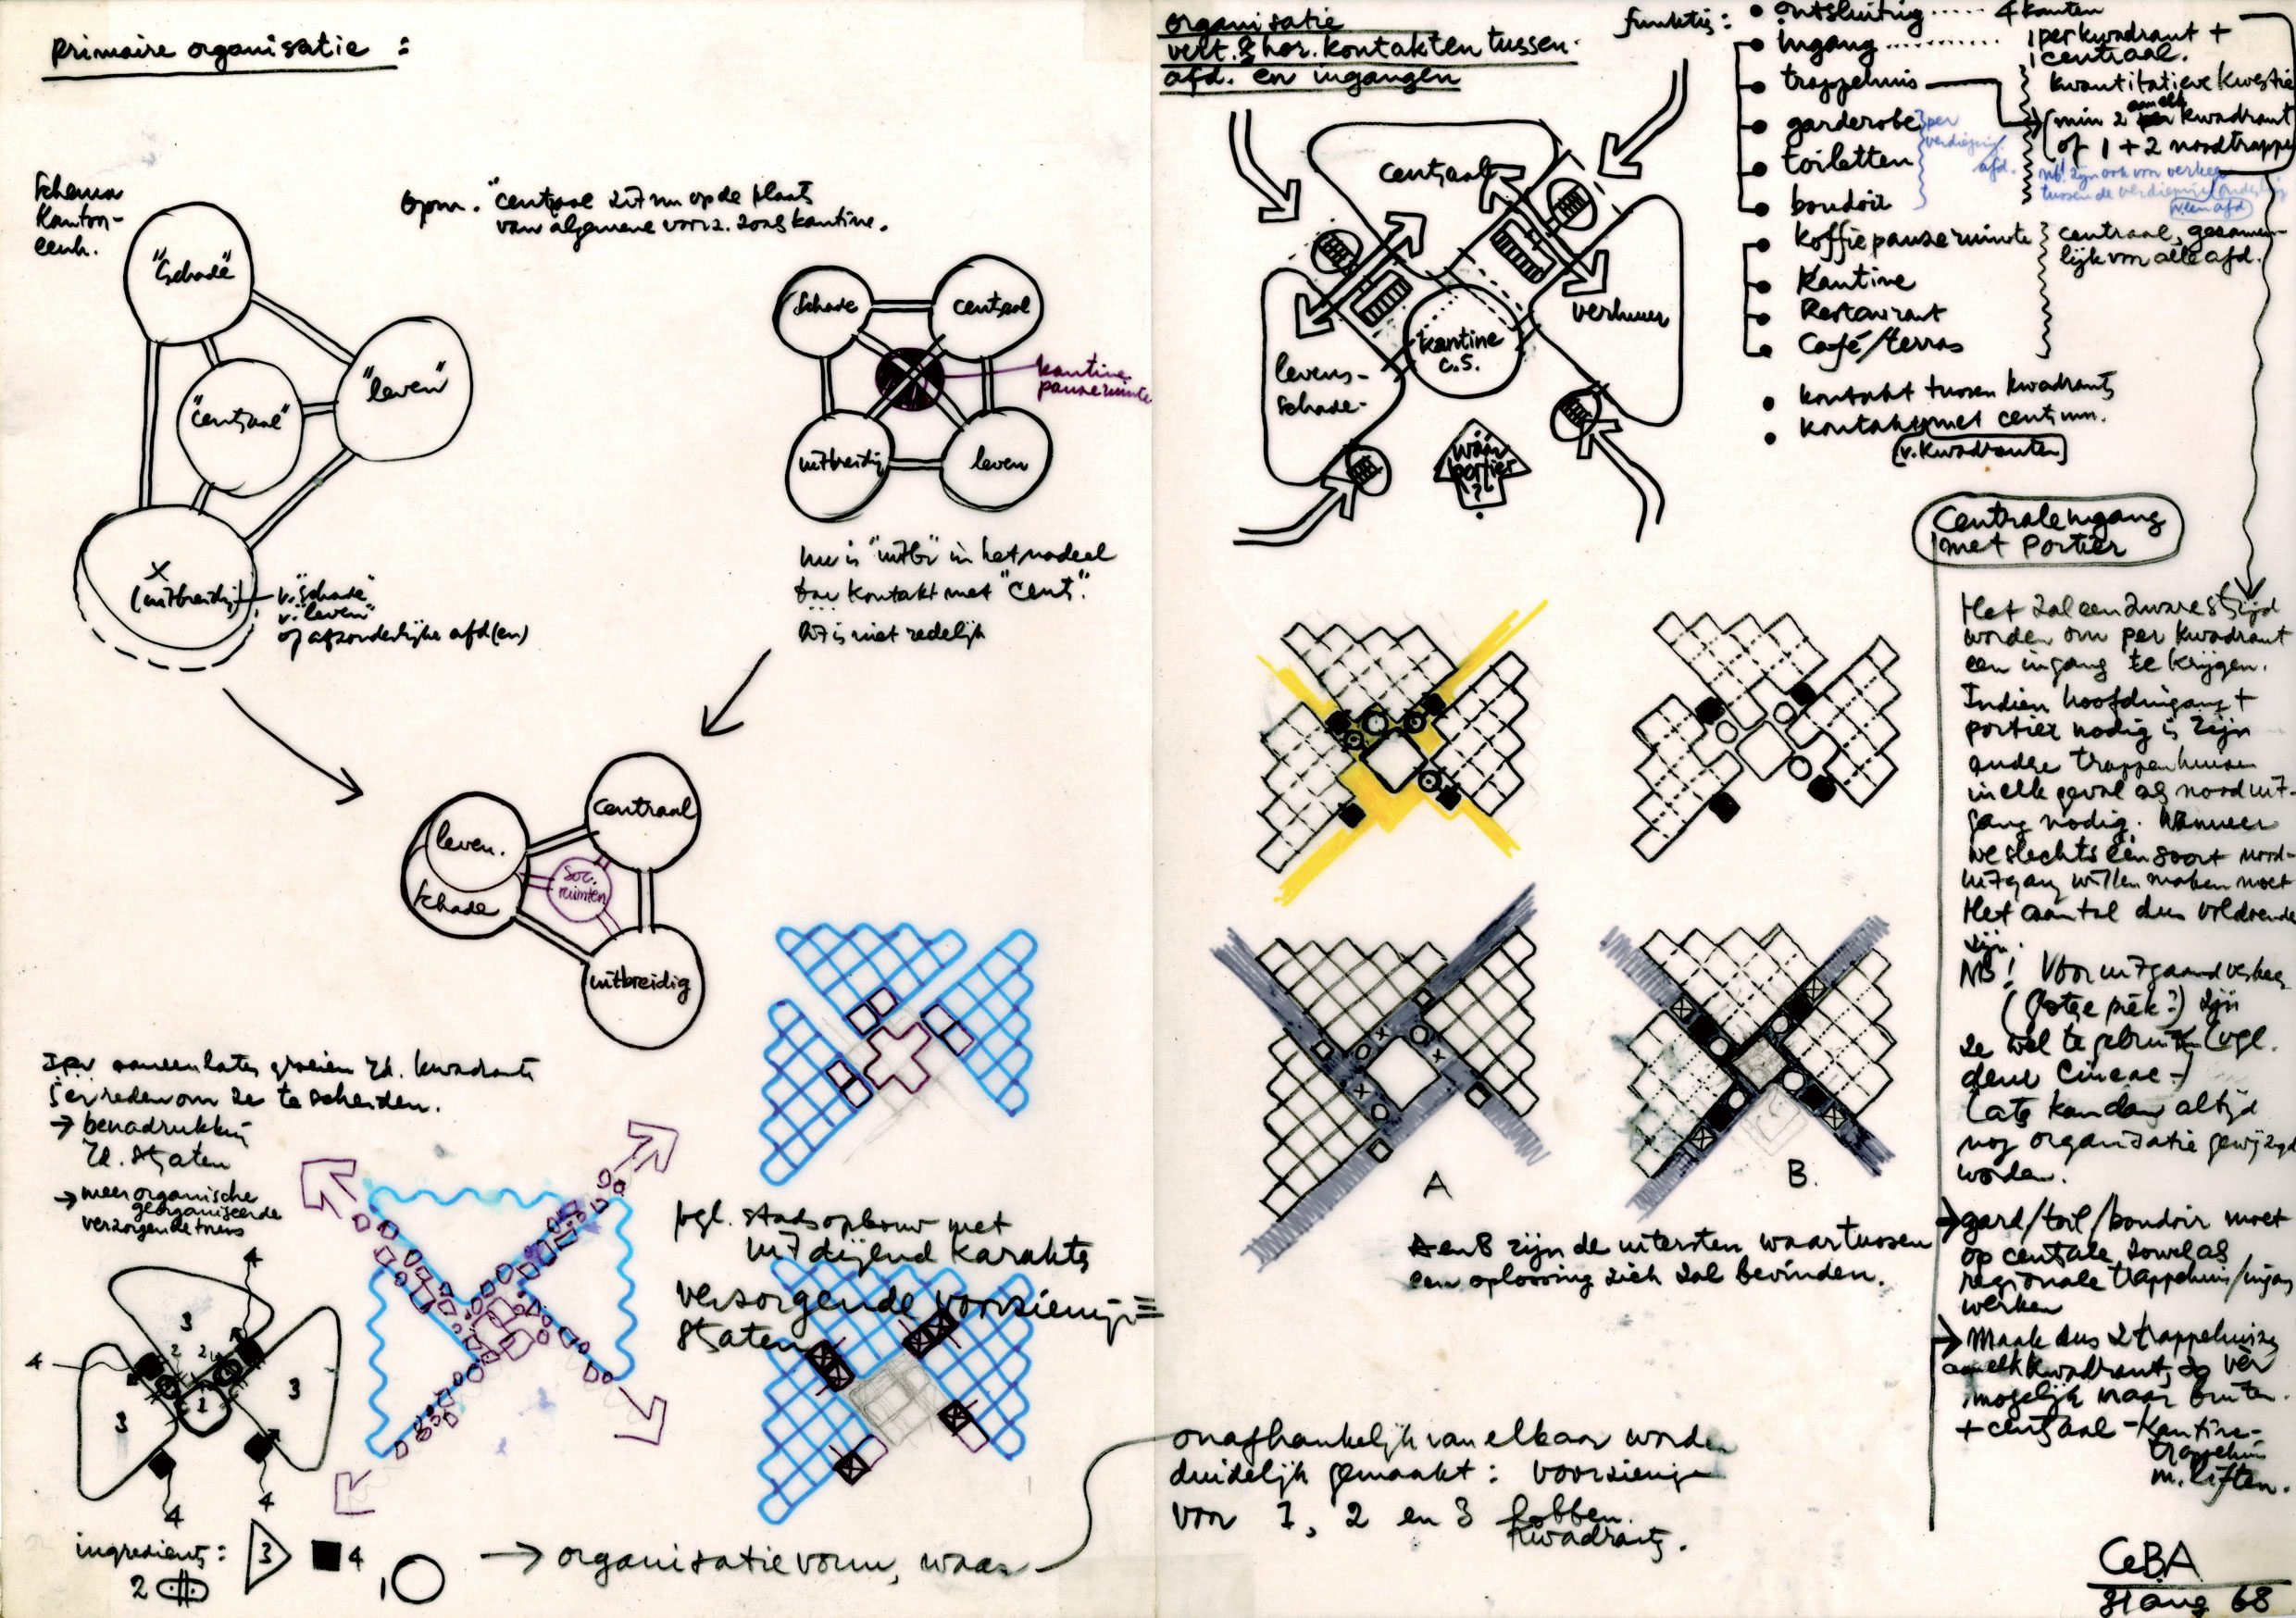 primaire organisatie :
Schema
Kantoor-
eenh.
"Schade"
"leven"
"centraal"
X
(uitbreidg)
v. "schade"
v. "leven"
of afzonderlijke afd(en)
opm. "centraal zit nu op de plaats
van algemene voorz. zoals kantine.
schade
centraal
kantine
pauzeruimte
uitbreidg
leven
nu is "uitbr" in het nadeel
kontakt met "cent".
Dit is niet redelijk
leven.
schade
centraal
soc.
ruimten
uitbreidig
groeien kwadrants
reden om ze te scheiden.
→ benadrukking
straten
→ meer organische
georganiseerde
verzorgende
4
3
2
2
4
3
1
3
4
4
vgl. stadsopbouw met
uitdijend karakter
verzorgende voorzieng =
straten
ingredients :
3
4
2
1
→ organisatievorm, waar
organisatie
vert. & hor. kontakten tussen
afd. en ingangen
centraal
verhuur
kantine
c.s.
levens-
schade-
waar
portier
?
funkties :
ontsluiting ..... 4 kanten
ingang ......... 1 per kwadrant +
1 centraal.
trappehuis
kwantitatieve kwestie
min 2 aan elk kwadrant
of 1 + 2 noodtrappe
garderobe
toiletten
boudoir
per
verdieping
afd.
nb! zijn ook voor verkeer
tussen de verdiepingen
v. een afd
koffiepauzeruimte
Kantine
Restaurant
Café/terras
centraal, gezamen-
lijk voor alle afd.
kontakt tussen kwadrants
kontakt met centrum.
(v. kwadranten)
Centrale ingang
met portier
Het zal een zware strijd
worden om per kwadrant
een ingang te krijgen.
Indien hoofdingang +
portier nodig is zijn
andere trappenhuizen
in elk geval als nooduit-
gang nodig. Wanneer
we slechts één soort nood-
uitgang willen maken moet
Het aantal dus voldoende
zijn.
NB! Voor uitgaand verkeer
(grote piek?) zijn
ze wel te gebruiken (vgl.
deur Cineac -)
Later kan dan altijd
nog organisatie gewijzigd
worden.
→ gard/toil/boudoir moet
op centrale zowel als
regionale trappehuis/ingang
werken
→ Maak dus 2 trappehuizen
aan elk kwadrant, zo ver
mogelijk naar buiten.
+ centraal - Kantine-
trappehuis
m. liften.
A
B.
A en B zijn de uitersten waartussen
een oplossing zich zal bevinden.
onafhankelijk van elkaar worden
duidelijk gemaakt : voorzieng
voor 1, 2 en 3 lobben.
kwadrants.
CeBA
31 aug 68